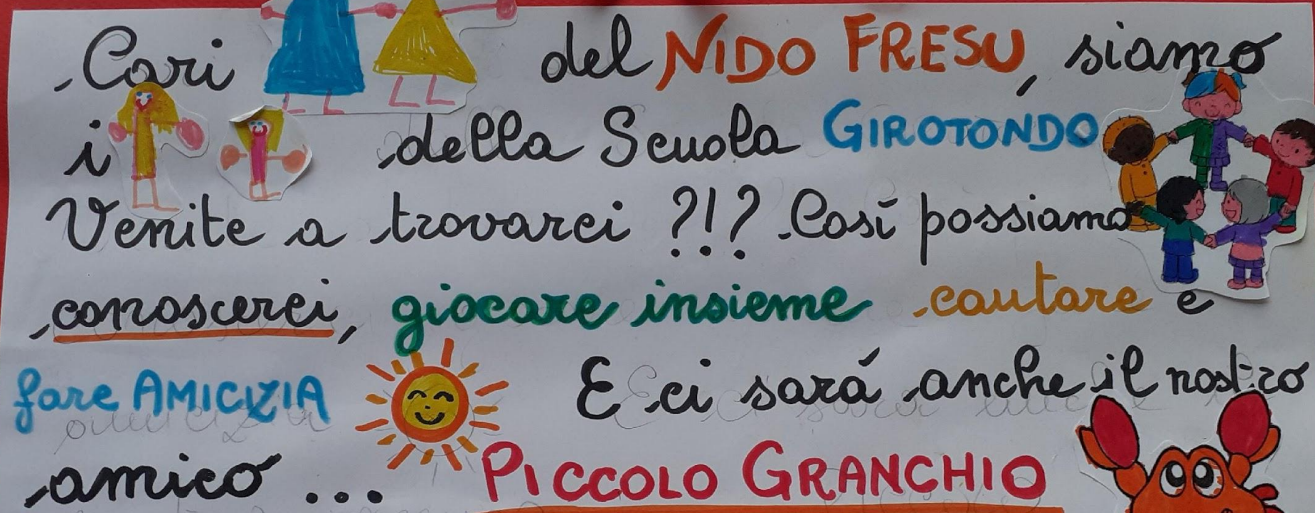 Cari del NIDO FRESU, siamo
i della Scuola GIROTONDO
Venite a trovarci ?!? Così possiamo
conoscerci, giocare insieme cantare e
fare AMICIZIA E ci sará anche il nostro
amico ... PICCOLO GRANCHIO